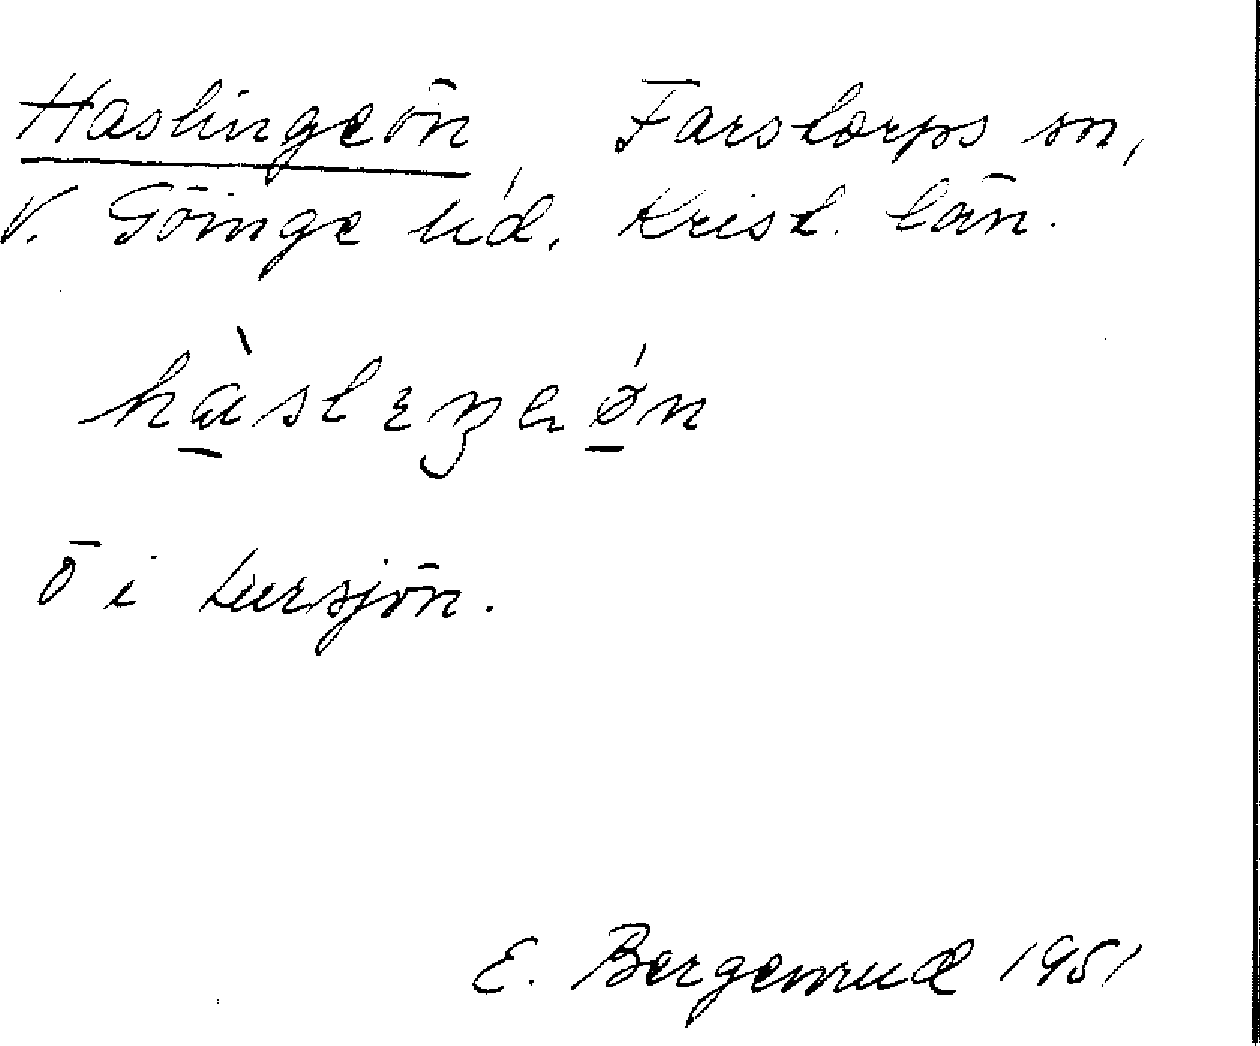 Haslingeön, Farstorps sn,
V. Göinge hd. Krist. län.
hàslıŋəǿn
ö i Lursjön.
E. Bergenrud 1951